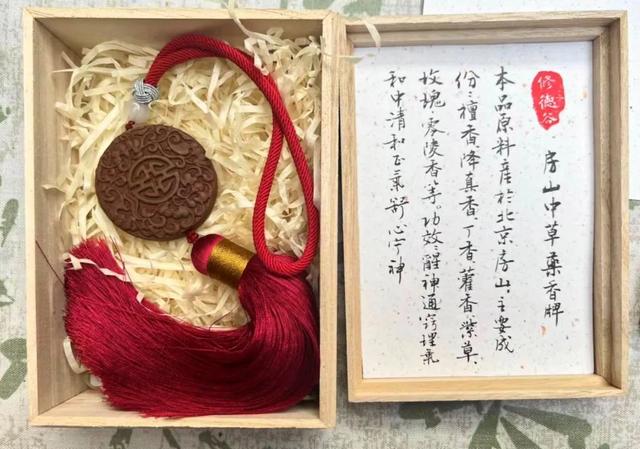 修德谷
房山中草藥香牌
本品原料産於北京房山，主要成
份：檀香、降真香、丁香、藿香、紫草、
玫瑰、零陵香等。功效：醒神通竅理氣
和中清和正氣舒心宁神